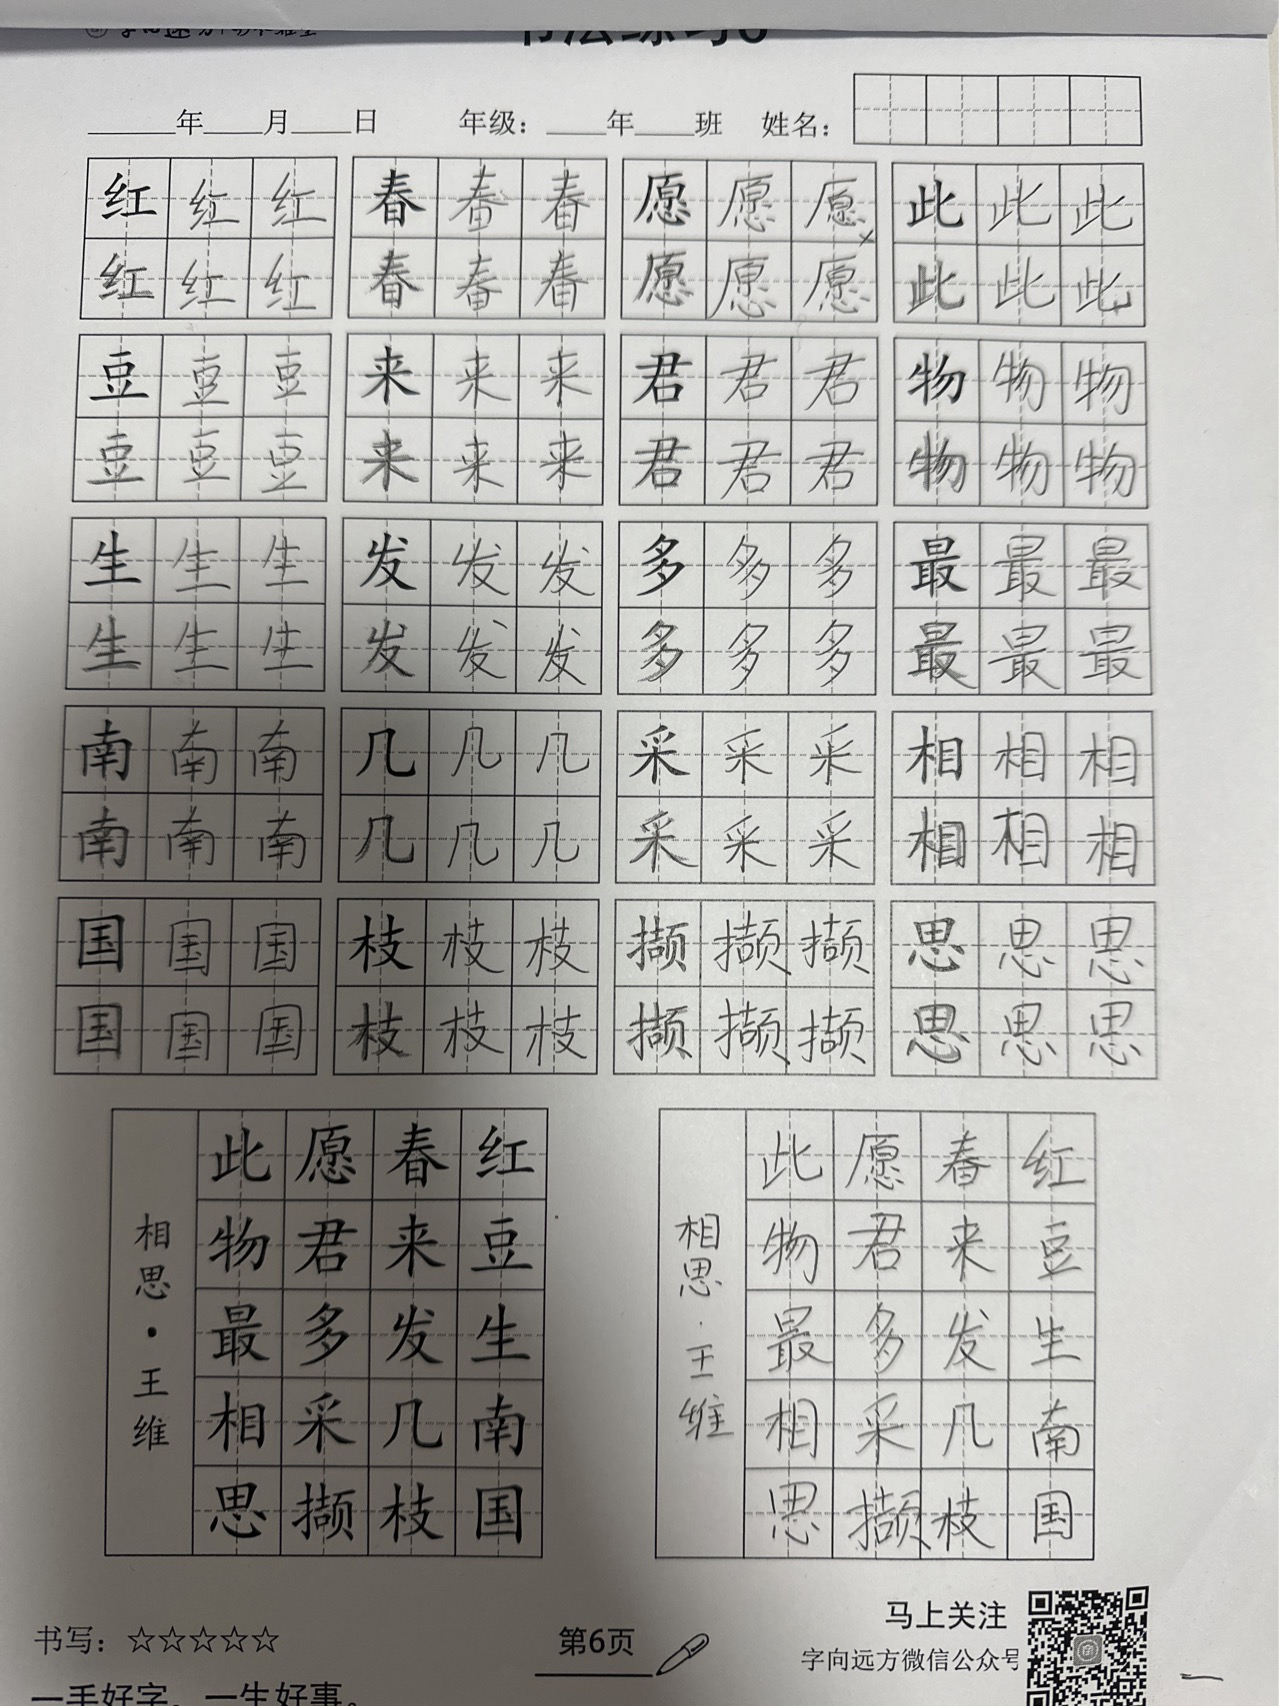 书法练习6
年 月 日 年级： 年 班 姓名：
红 红 红 春 春 春 愿 愿 愿 此 此 此
红 红 红 春 春 春 愿 愿 愿 此 此 此
豆 豆 豆 来 来 来 君 君 君 物 物 物
豆 豆 豆 来 来 来 君 君 君 物 物 物
生 生 生 发 发 发 多 多 多 最 最 最
生 生 生 发 发 发 多 多 多 最 最 最
南 南 南 几 几 几 采 采 采 相 相 相
南 南 南 几 几 几 采 采 采 相 相 相
国 国 国 枝 枝 枝 撷 撷 撷 思 思 思
国 国 国 枝 枝 枝 撷 撷 撷 思 思 思
红豆生南国
春来发几枝
愿君多采撷
此物最相思
相思·王维
红豆生南国
春来发几枝
愿君多采撷
此物最相思
相思·王维
书写：☆☆☆☆☆
第6页
马上关注
字向远方微信公众号
一手好字，一生好事。